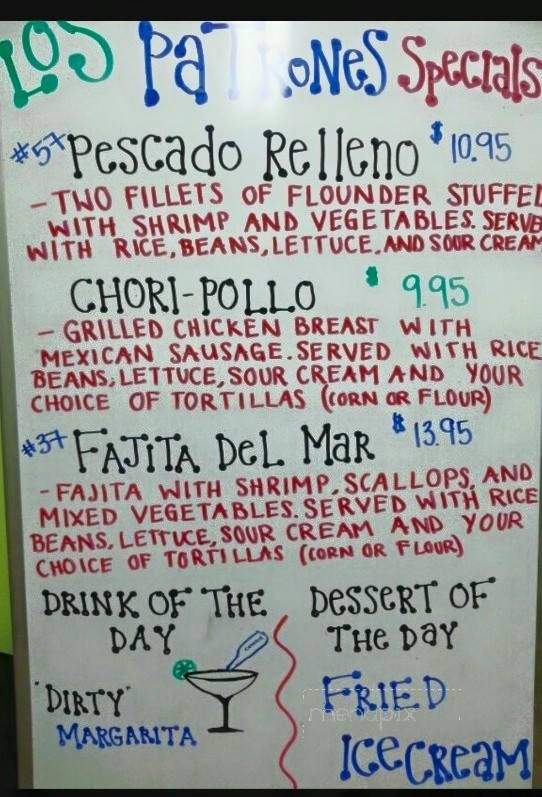 LOS PaTRoNeS Specials
#57 Pescado Relleno $10.95
- TWO FILLETS OF FLOUNDER STUFFED
WITH SHRIMP AND VEGETABLES. SERVE
WITH RICE, BEANS, LETTUCE, AND SOUR CREAM
CHORI-POLLO $9.95
- GRILLED CHICKEN BREAST WITH
MEXICAN SAUSAGE. SERVED WITH RICE
BEANS, LETTUCE, SOUR CREAM AND YOUR
CHOICE OF TORTILLAS (CORN OR FLOUR)
#37 FAJITA DeL MaR $13.95
- FAJITA WITH SHRIMP, SCALLOPS, AND
MIXED VEGETABLES. SERVED WITH RICE
BEANS, LETTUCE, SOUR CREAM AND YOUR
CHOICE OF TORTILLAS (CORN OR FLOUR)
DRINK OF THE
DAY
"DIRTY"
MARGARITA
DesserT OF
The Day
FRIED
ICE CREAM
menupix